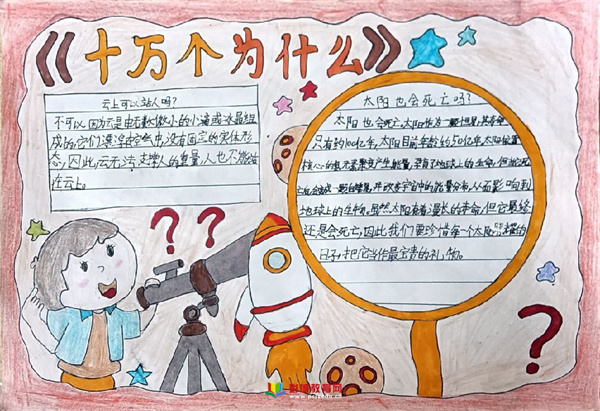 《十万个为什么》
云上可以站人吗?
不可以,因为云是由无数微小的小滴或冰晶组
成的,它们漂浮在空气中,没有固定的实体形
态,因此,云无法支撑人的重量,人也不能站
在云上。
太阳也会死亡吗?
太阳也会死亡,太阳作为一颗恒星,其寿命
只有约100亿年,太阳目前年龄约50亿年,太阳
核心的 聚变产生能量,
宇宙中的能量分布,从而影响到
地球上的生物,虽然太阳有着漫长的寿命,但它最终
还是会死亡,因此我们要珍惜每一个太阳 耀的
日子,把它当作最宝贵的礼物。
??
?
www.pcszedu.cn